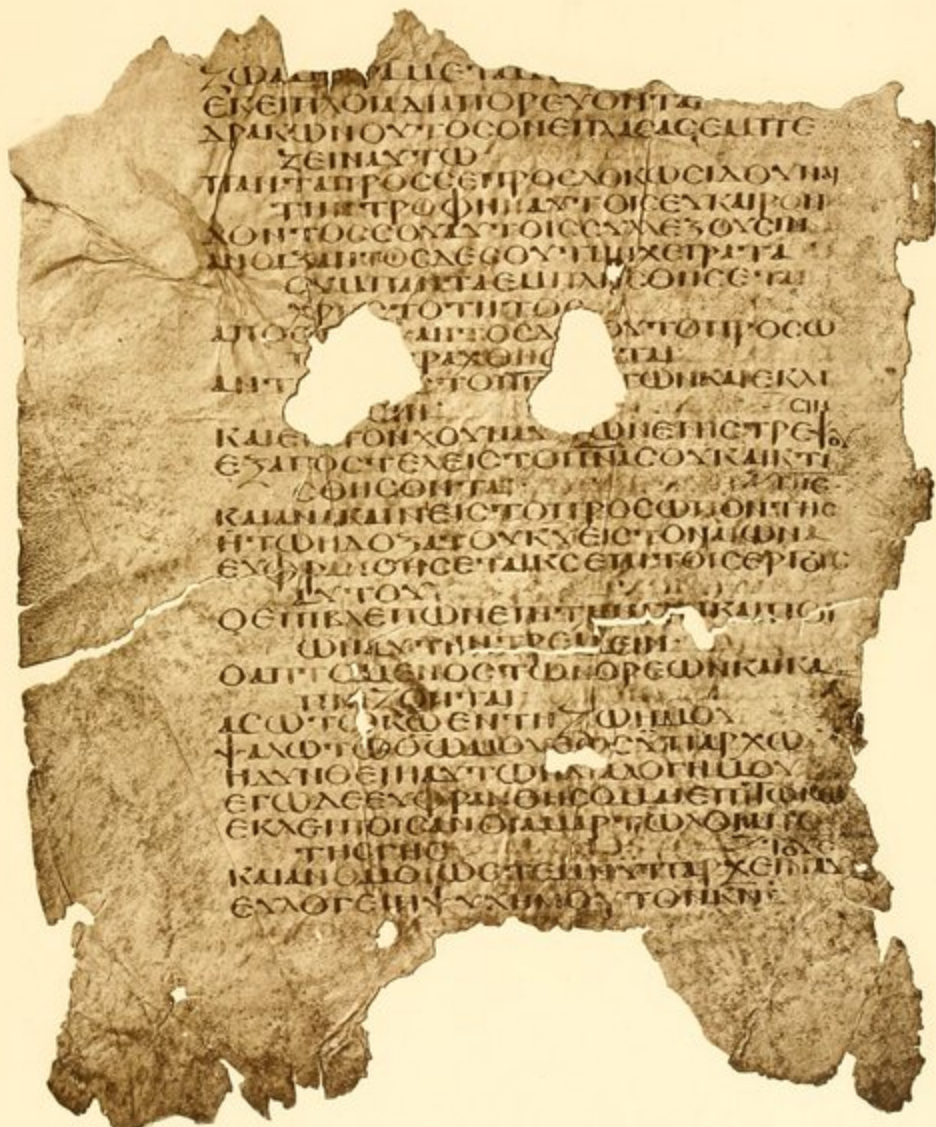 ΖΩΑΜ ΑΜΕΤΑΜ
ΕΚΕΙΠΛΟΙΑΔΙΑΠΟΡΕΥΟΝΤΑΙ
ΔΡΑΚΩΝΟΥΤΟCΟΝΕΠΛΑCΑCΕΜΠΕ
ΖΕΙΝΑΥΤΩ
ΠΑΝΤΑΠΡΟCCΕΠΡΟCΔΟΚΩCΙΔΟΥΝΑΙ
ΤΗΝΤΡΟΦΗΝΑΥΤΟΙCΕΥΚΑΙΡΟΝ
ΔΟΝΤΟCCΟΥΑΥΤΟΙCCΥΛΛΕΞΟΥCΙΝ
ΑΝΟΙΞΑΝΤΟCΔΕCΟΥΤΗΝΧΕΙΡΑΤΑ
CΥΜΠΑΝΤΑΕΜΠΛΗCΘΗCΕΤΑΙ
ΧΡΗCΤΟΤΗΤΟC
ΑΠΟC ΑΝΤΟCΔ ΟΥΤΟΠΡΟCΩ
Τ ΡΑΧΘΗC ΤΑΙ
ΑΝΤ ΤΟΠ ΤΩΝΚΑΙΕΚΛΙ
CΙΝ
ΚΑΙΕΙ ΤΟΝΧΟΥΝΑΥ ΩΝΕΠΙCΤΡΕΨΟΥ
ΕΞΑΠΟCΤΕΛΕΙCΤΟΠΝΑCΟΥΚΑΙΚΤΙ
CΘΗCΟΝΤΑΙ ΓΗC
ΚΑΙΑΝΑΚΑΙΝΕΙCΤΟΠΡΟCΩΠΟΝΤΗC
ΗΤΩΗΔΟΞΑΤΟΥΚΥΕΙCΤΟΝΑΙΩΝΑ
ΕΥΦΡΑΝΘΗCΕΤΑΙΚCΕΠΙΤΟΙCΕΡΓΟΙC
ΑΥΤΟΥ
ΟΕΠΙΒΛΕΠΩΝΕΠΙΤΗΝΓΗΝΚΑΙΠΟΙ
ΩΝΑΥΤΗΝΤΡΕΜΕΙΝ
ΟΑΠΤΟΜΕΝΟCΤΩΝΟΡΕΩΝΚΑΙΚΑ
ΠΝΙΖΟΝΤΑΙ
ΑCΩΤΩΚΩΕΝΤΗΖΩΗΜΟΥ
ΨΑΛΩΤΩΘΩΜΟΥΕΩCΥΠΑΡΧΩ
ΗΔΥΝΘΕΙΗΑΥΤΩΗΔΙΑΛΟΓΗΜΟΥ
ΕΓΩΔΕΕΥΦΡΑΝΘΗCΟΜΑΙΕΠΙΤΩΚΩ
ΕΚΛΕΙΠΟΙCΑΝΟΙΑΜΑΡΤΩΛΟΙΑΠΟ
ΤΗCΓΗC ΤΟΥC
ΚΑΙΑΝΟΜΟΙΩCΤΕΜΗΥΠΑΡΧΕΙΝΑΥ
ΕΥΛΟΓΕΙΗΨΥΧΗΜΟΥΤΟΝΚΝ